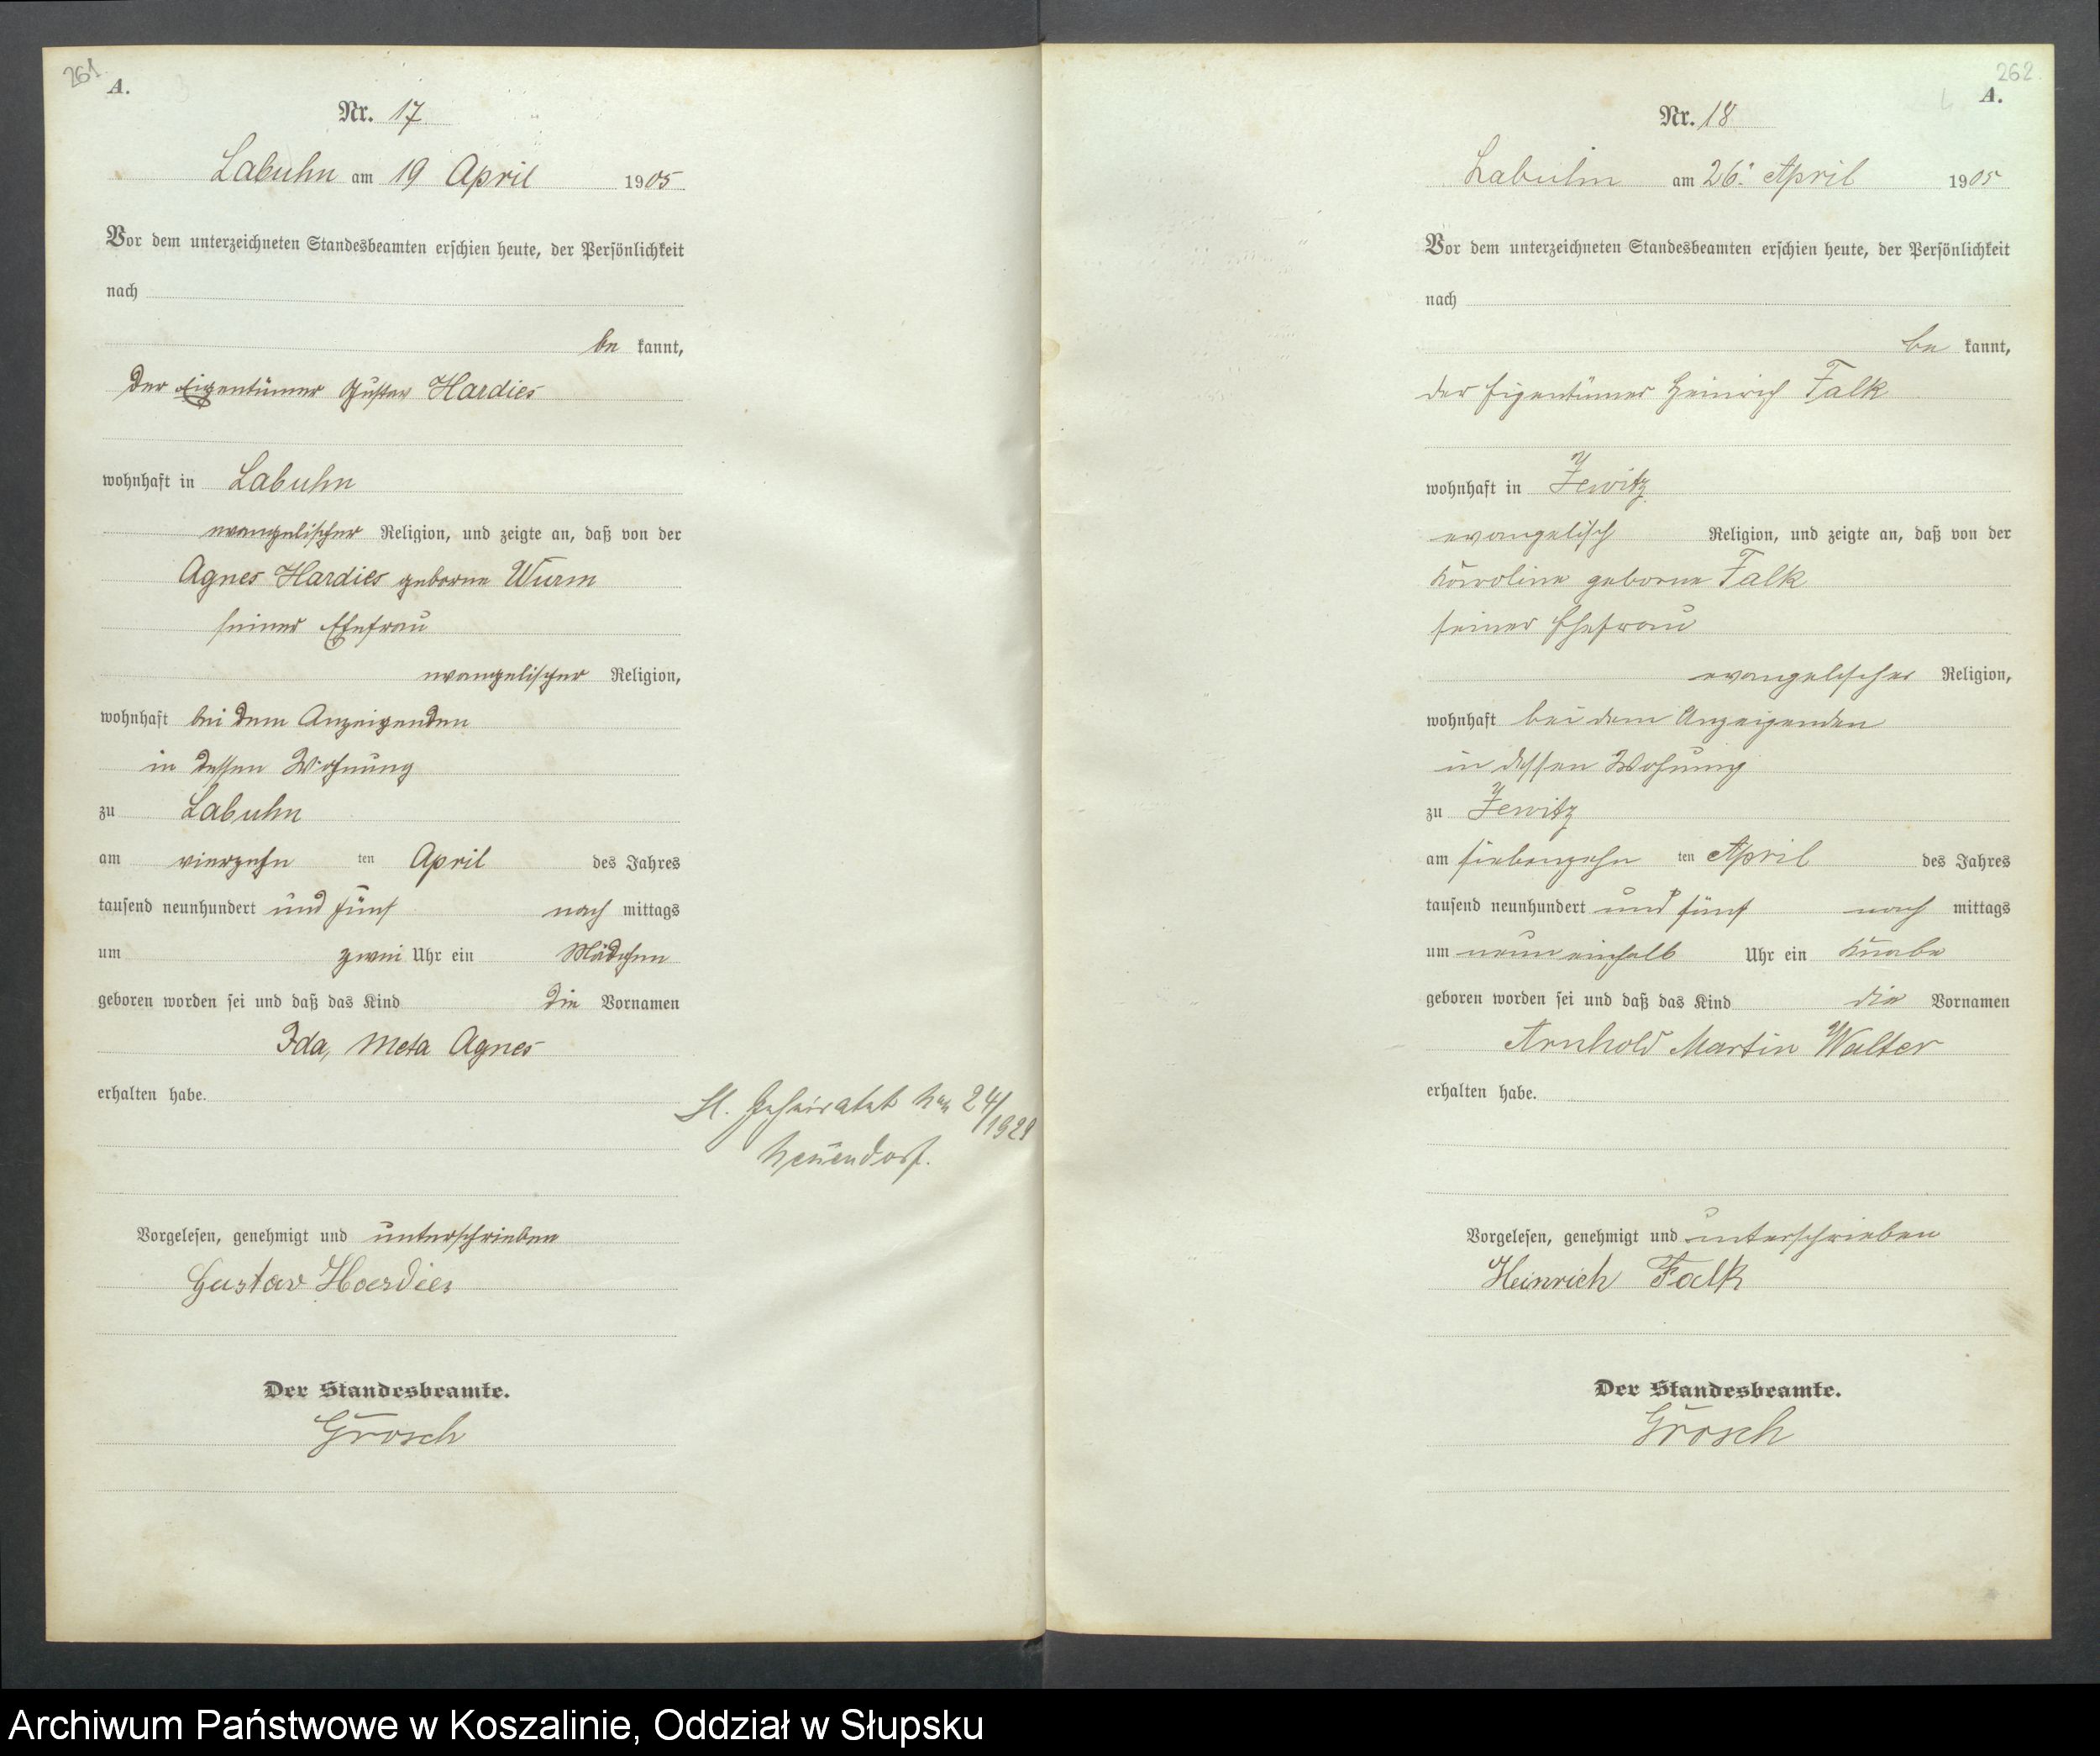 261
A.
Nr. 17
Labuhn am 19 April 1905
Vor dem unterzeichneten Standesbeamten erschien heute, der Persönlichkeit
nach
be kannt,
der Eigentümer Gustav Hardies
wohnhaft in Labuhn
evangelischer Religion, und zeigte an, daß von der
Agnes Hardies geborne Wurm
seiner Ehefrau
evangelischer Religion,
wohnhaft bei dem Anzeigenden
in dessen Wohnung
zu Labuhn
am vierzehn ten April des Jahres
tausend neunhundert und fünf nach mittags
um zwei Uhr ein Mädchen
geboren worden sei und daß das Kind die Vornamen
Ida, Meta Agnes
erhalten habe.
Geheiratet 24/1929
Neuendorf.
Vorgelesen, genehmigt und unterschrieben
Gustav Hardies
Der Standesbeamte.
Grosch
262
A.
Nr. 18
Labuhn am 26. April 1905
Vor dem unterzeichneten Standesbeamten erschien heute, der Persönlichkeit
nach
be kannt,
der Eigentümer Heinrich Falk
wohnhaft in Zewitz
evangelisch Religion, und zeigte an, daß von der
Karoline geborne Falk
seiner Ehefrau
evangelischer Religion,
wohnhaft bei dem Anzeigenden
in dessen Wohnung
zu Zewitz
am siebenzehn ten April des Jahres
tausend neunhundert und fünf nach mittags
um neun einhalb Uhr ein Knabe
geboren worden sei und daß das Kind die Vornamen
Arnhold Martin Walter
erhalten habe.
Vorgelesen, genehmigt und unterschrieben
Heinrich Falk
Der Standesbeamte.
Grosch
Archiwum Państwowe w Koszalinie, Oddział w Słupsku